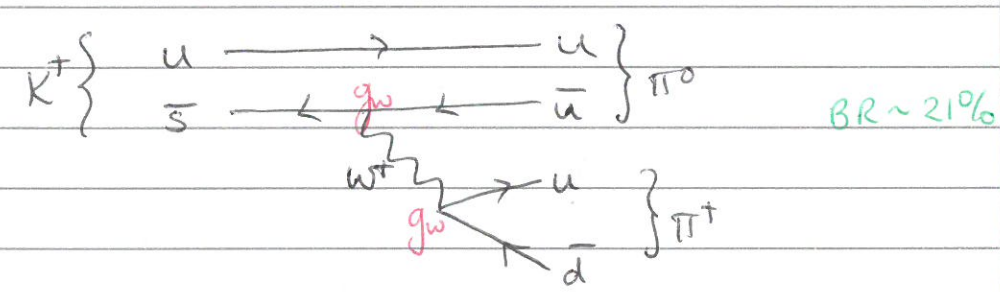 K⁺ { u u } π⁰
s̄ gw ū
BR ~ 21%
W⁺ u } π⁺
gw
d̄